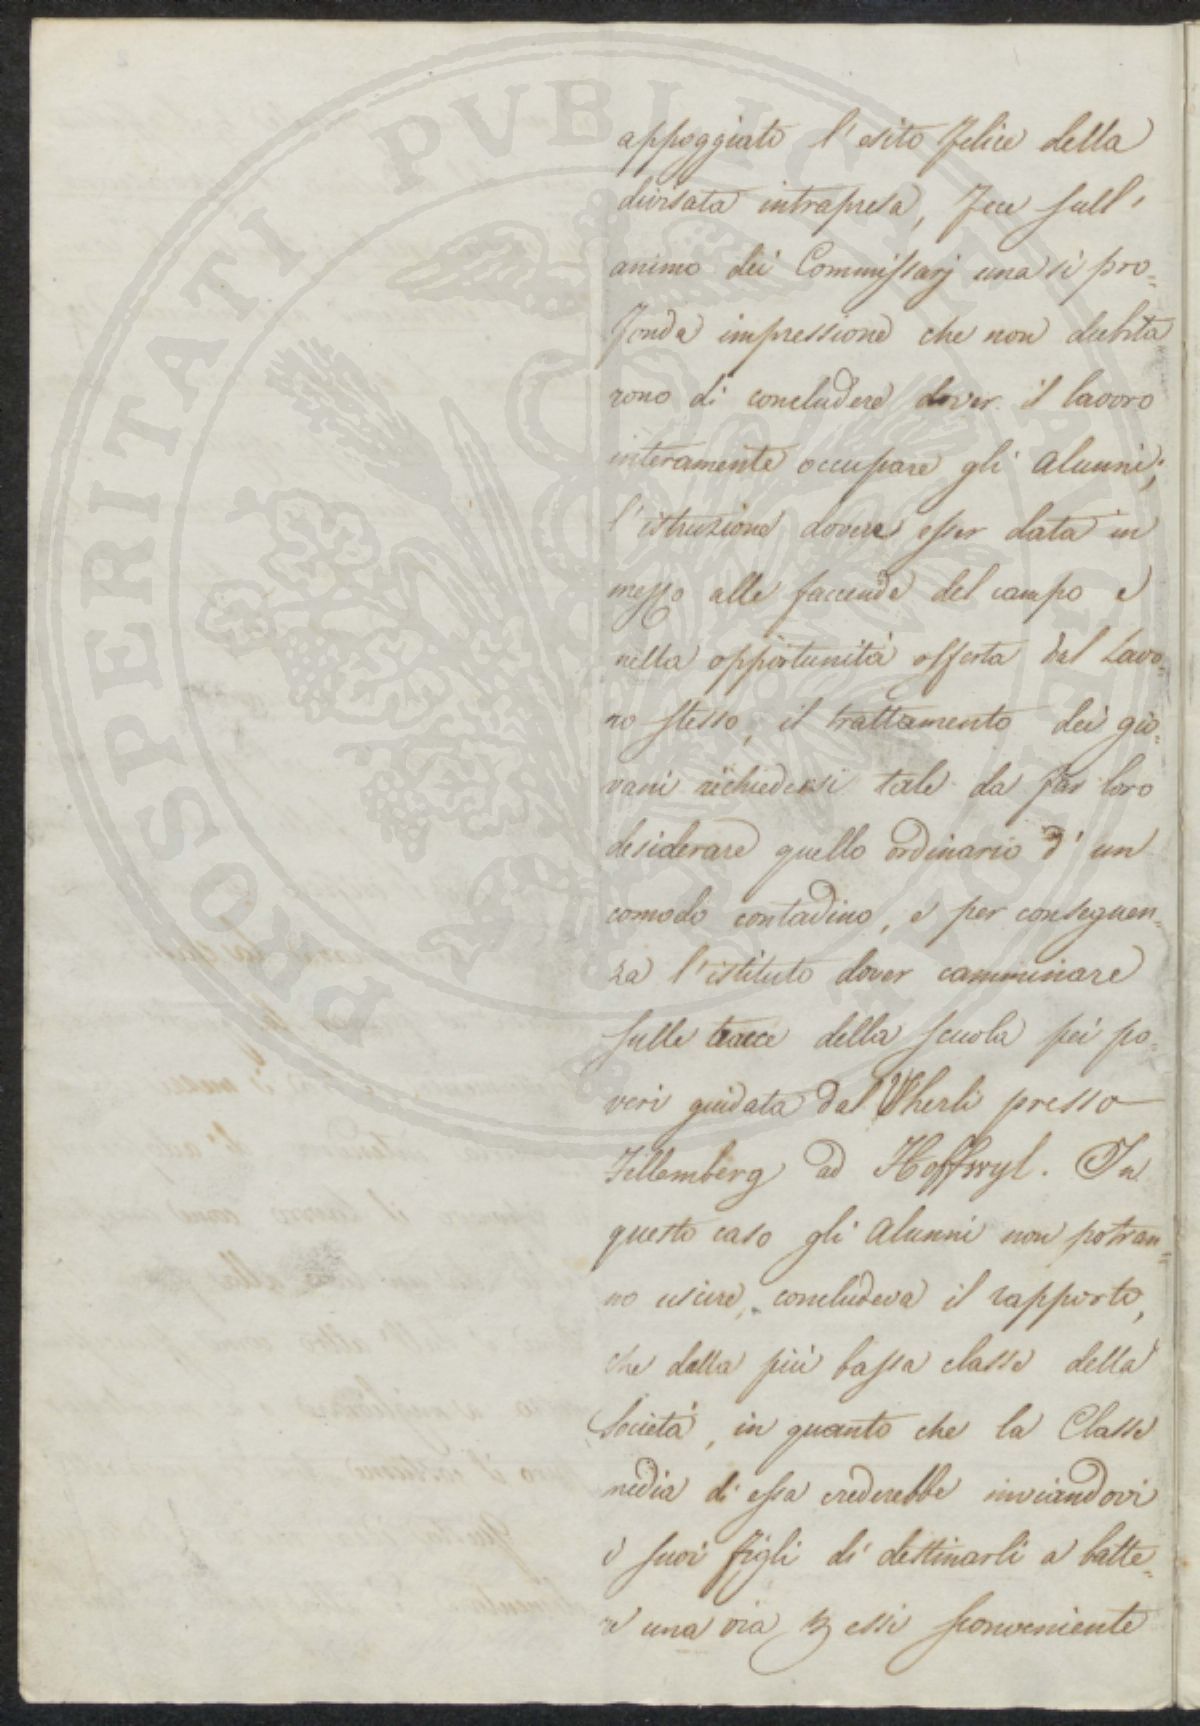 appoggiato l'esito felice della
divisata intrapresa, fece sull'
animo dei Commissarj una sì pro=
fonda impressione che non dubita
rono di concludere dover il lavoro
interamente occupare gli Alunni;
l'istruzione dovere esser data in
mezzo alle faccende del campo e
nella opportunità offerta dal Lavo=
ro stesso, il trattamento dei gio=
vani richiedersi tale da far loro
desiderare quello ordinario d'un
comodo contadino, e per conseguen=
za l'istituto dover camminare
sulle tracce della scuola pei po=
veri guidata dal Wherli presso
Fellemberg ad Hoffwyl. In
questo caso gli Alunni non potran=
no uscire, concludeva il rapporto,
che dalla più bassa classe della
Società, in quanto che la Classe
media di essa crederebbe inviandovi
i suoi figli di destinarli a batte=
re una via p essi sconveniente
PROSPERITATI PVBLICAE AVGENDAE